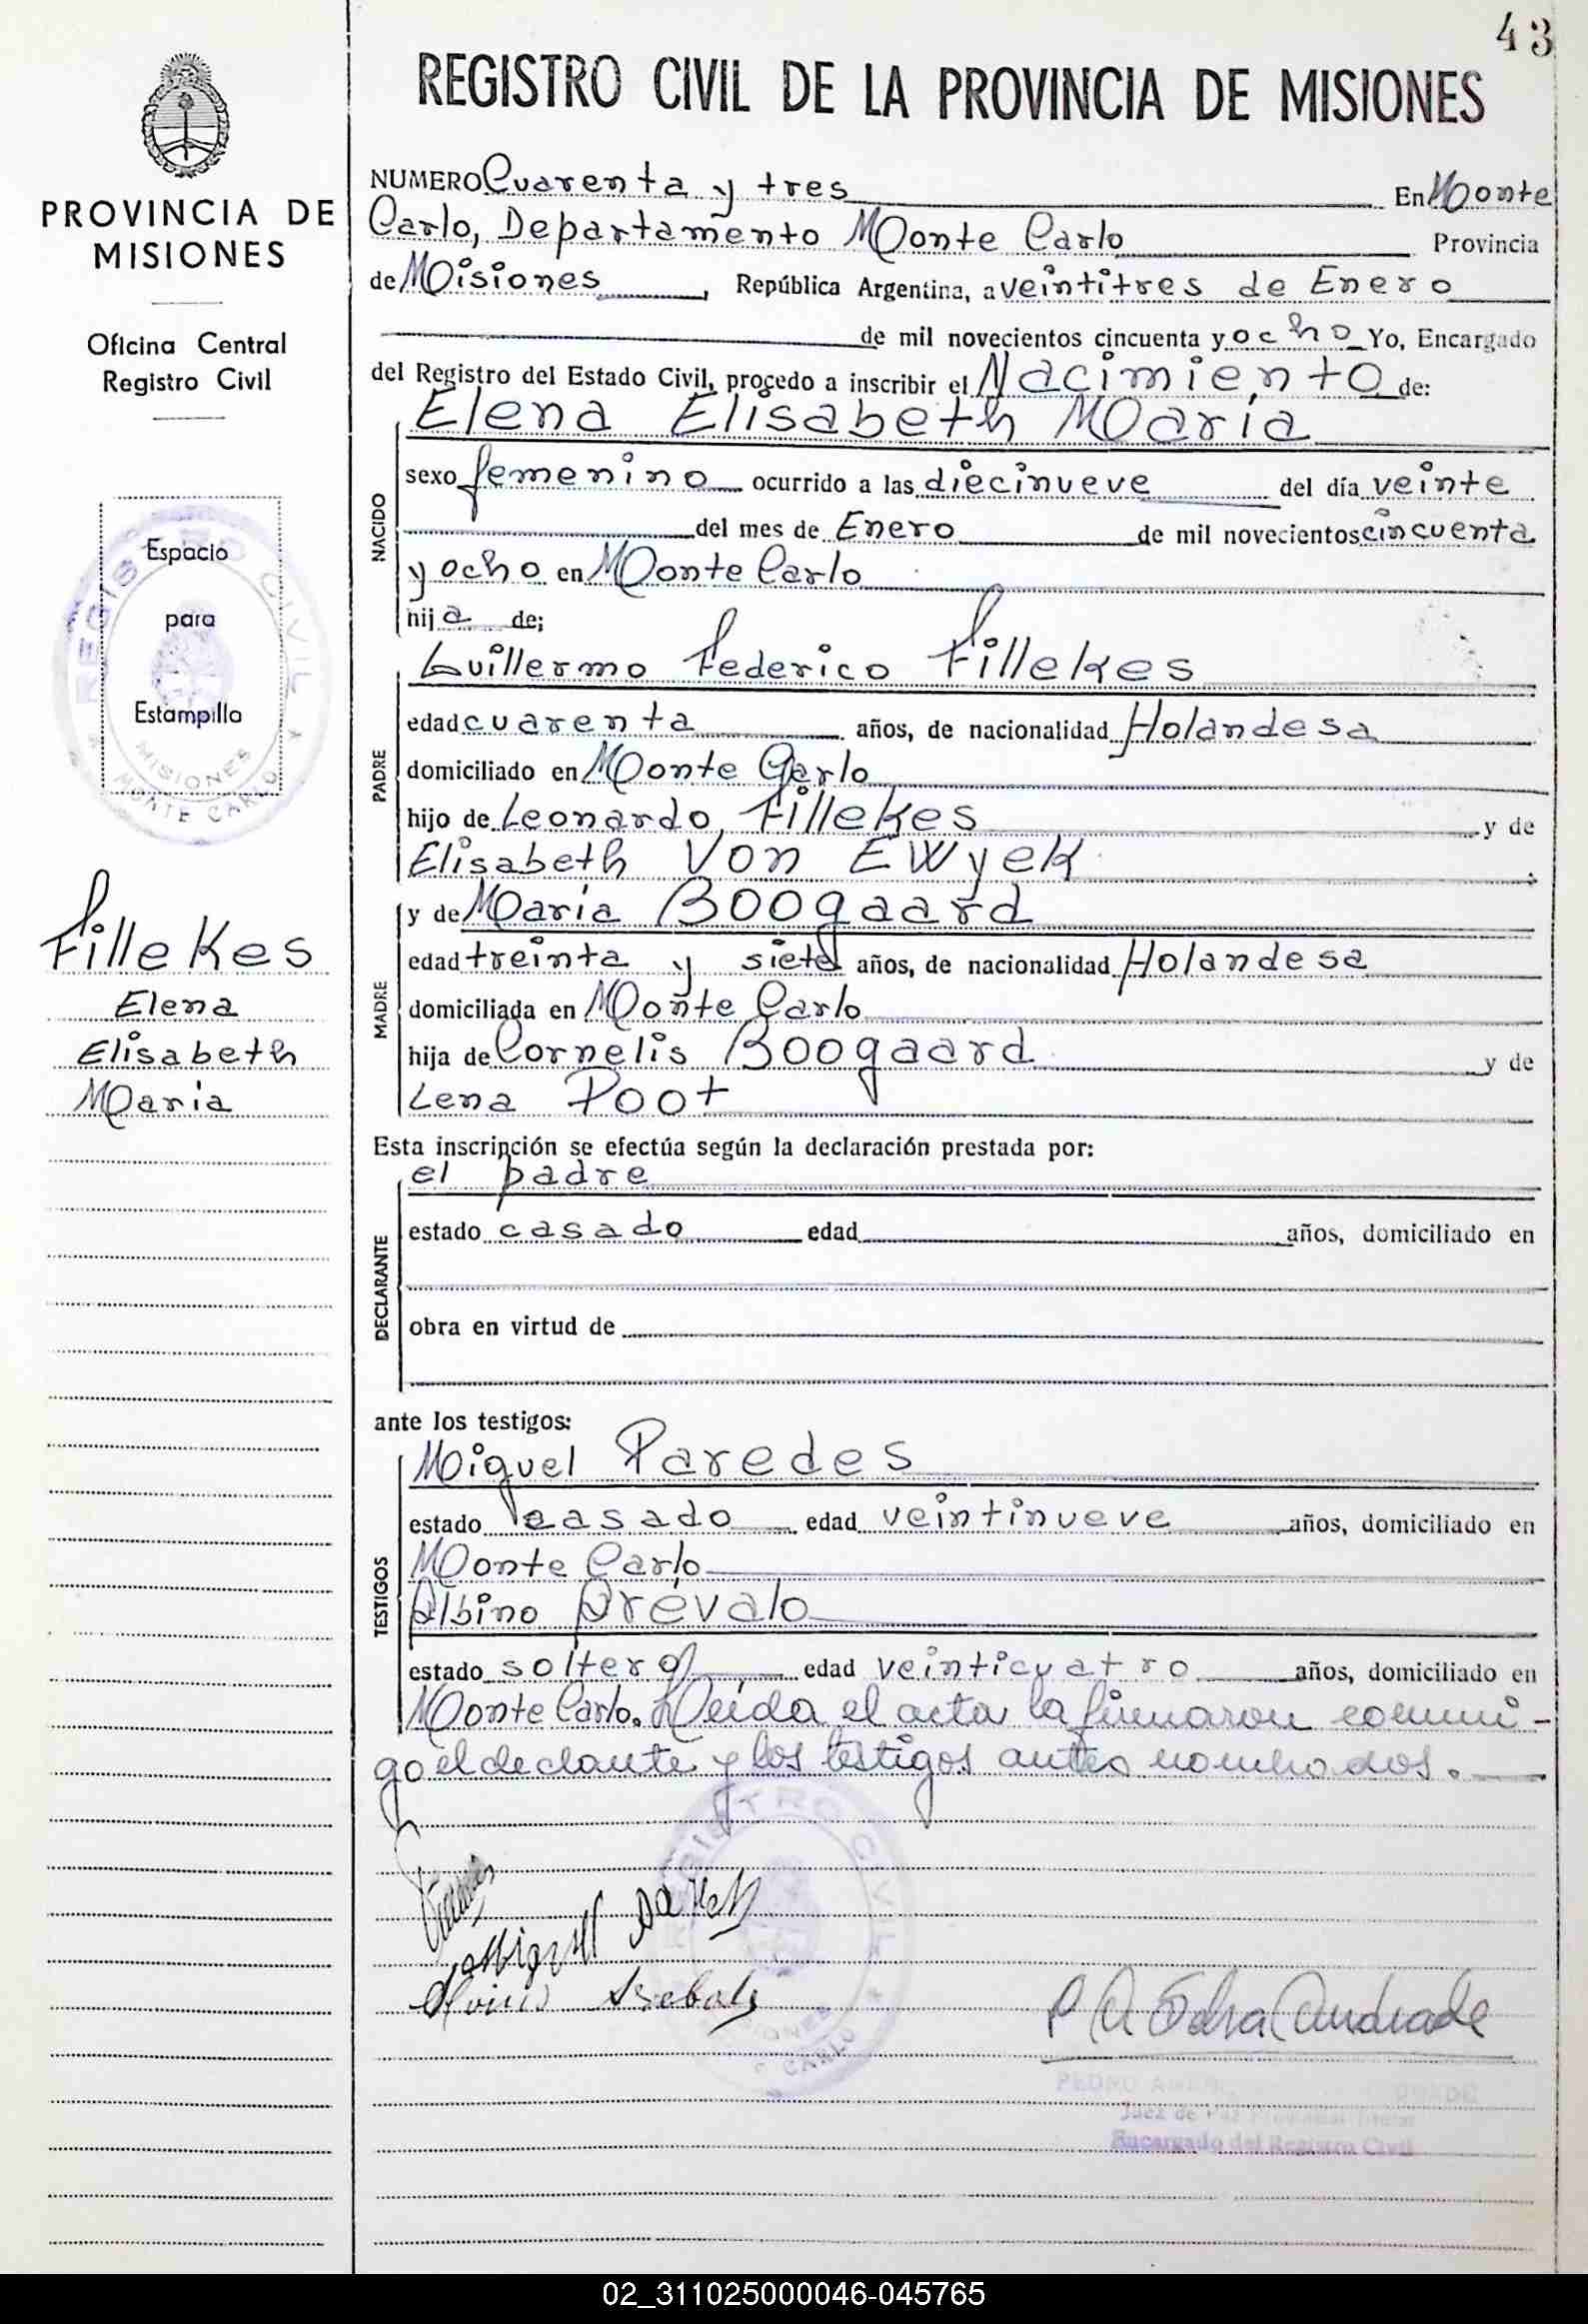 43
REGISTRO CIVIL DE LA PROVINCIA DE MISIONES
PROVINCIA DE
MISIONES
Oficina Central
Registro Civil
Espacio
para
Estampilla
REGISTRO CIVIL
MISIONES
MONTE CARLO
Fillekes
Elena
Elisabeth
María
NUMERO Cuarenta y tres En Monte
Carlo, Departamento Monte Carlo Provincia
de Misiones, República Argentina, a veintitres de Enero
de mil novecientos cincuenta y ocho Yo, Encargado
del Registro del Estado Civil, procedo a inscribir el Nacimiento de:
Elena Elisabeth María
NACIDO
sexo femenino ocurrido a las diecinueve del día veinte
del mes de Enero de mil novecientos cincuenta
y ocho en Monte Carlo
hija de;
Guillermo Federico Fillekes
PADRE
edad cuarenta años, de nacionalidad Holandesa
domiciliado en Monte Carlo
hijo de Leonardo Fillekes y de
Elisabeth Von EWyek
MADRE
y de María Boogaard
edad treinta y siete años, de nacionalidad Holandesa
domiciliada en Monte Carlo
hija de Cornelis Boogaard y de
Lena Poot
Esta inscripción se efectúa según la declaración prestada por:
el padre
DECLARANTE
estado casado edad años, domiciliado en
obra en virtud de
ante los testigos:
Miguel Paredes
TESTIGOS
estado casado edad veintinueve años, domiciliado en
Monte Carlo
Albino Arévalo
estado soltero edad veinticuatro años, domiciliado en
Monte Carlo. Leída el acta la firmaron conmi-
go el declante y los testigos antes nombrados.
REGISTRO CIVIL
MISIONES
CARLO
P A Andrade
PEDRO
Juez de Paz
Encargado del Registro Civil
02_311025000046-045765